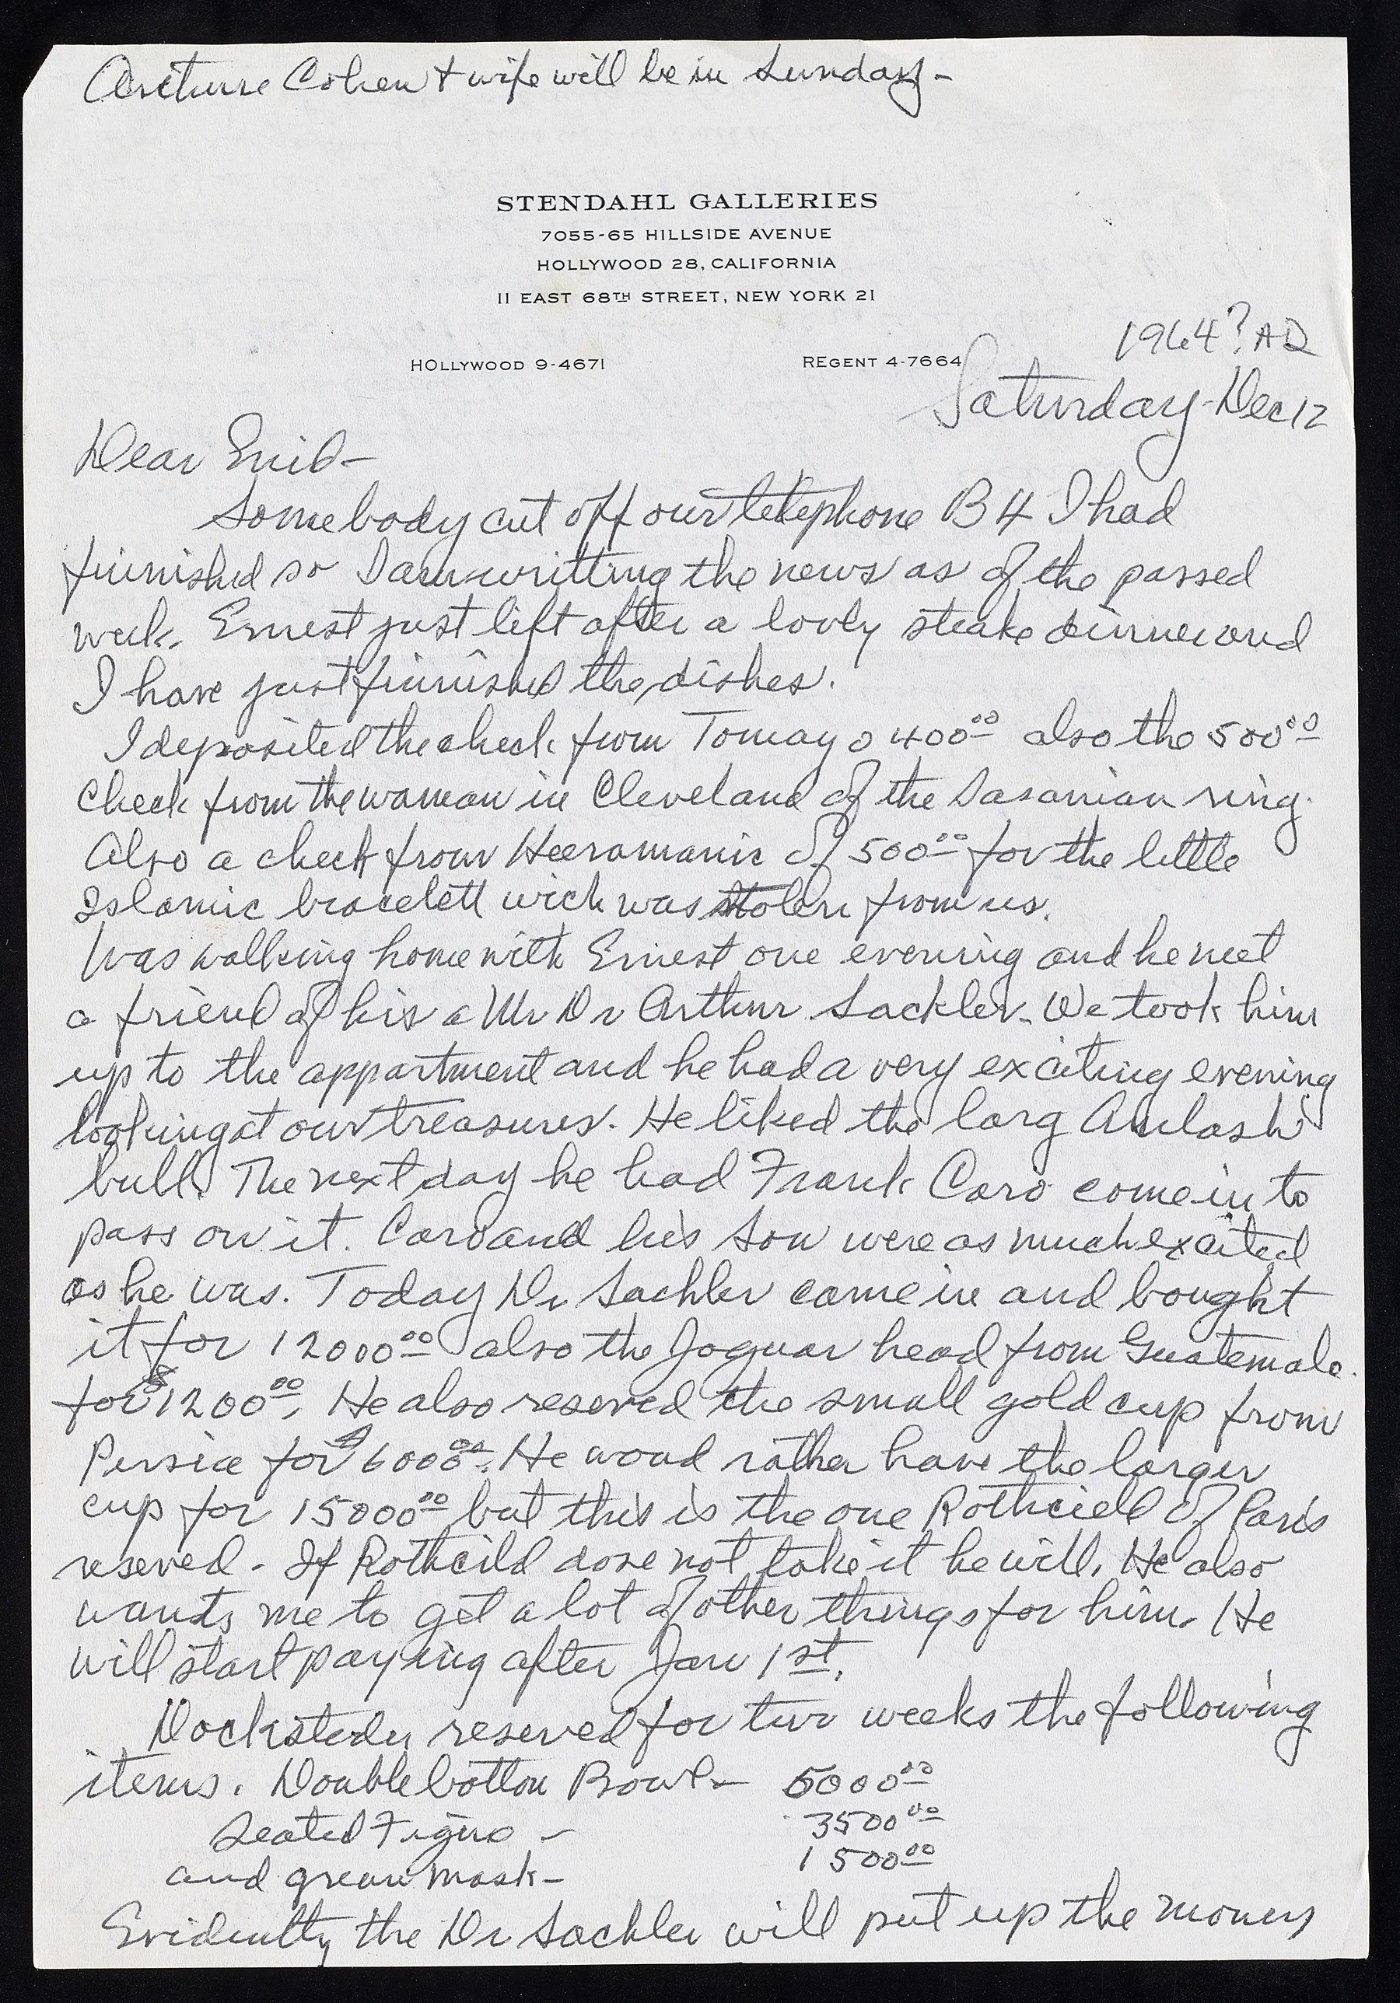 Arcture Cohen + wife will be in Sunday -
STENDAHL GALLERIES
7055-65 HILLSIDE AVENUE
HOLLYWOOD 28, CALIFORNIA
11 EAST 68TH STREET, NEW YORK 21
1964? AD
HOLLYWOOD 9-4671 REGENT 4-7664
Saturday - Dec 12
Dear Enid -
Somebody cut off our telephone B 4 I had
finnished so I am writting the news as of the passed
week. Ernest just left after a lovly steake dinner and
I have just finnished the dishes.
I deposited the check from Tomayo 400.00 also the 500.00
check from the woman in Cleveland of the Sasanian ring.
Also a check from Heeramanic of 500.00 for the little
Islamic bracelett wich was stolen from us.
Was walking home with Ernest one evening and he met
a friend of his a Mr Dr Arthur Sackler. We took him
up to the appartment and he had a very exciting evening
looking at our treasures. He liked the larg Amlash
bull. The next day he had Frank Caro come in to
pass on it. Caro and his son were as much excited
as he was. Today Dr Sachler came in and bought
it for 12000.00 also the Jaguar head from Guatemala.
for $1200.00. He also reserved the small gold cup from
Persia for 6000.00. He woud rather have the larger
cup for 15000.00 but this is the one Rothcield of Paris
reserved. If Rothcild dose not take it he will. He also
wants me to get a lot of other things for him. He
will start paying after Jan 1st.
Dockstedер reserved for two weeks the following
items. Double botton Bowl - 5000.00
Seated Figure - 3500.00
and green mask - 1500.00
Evidently the Dr Sachler will put up the money